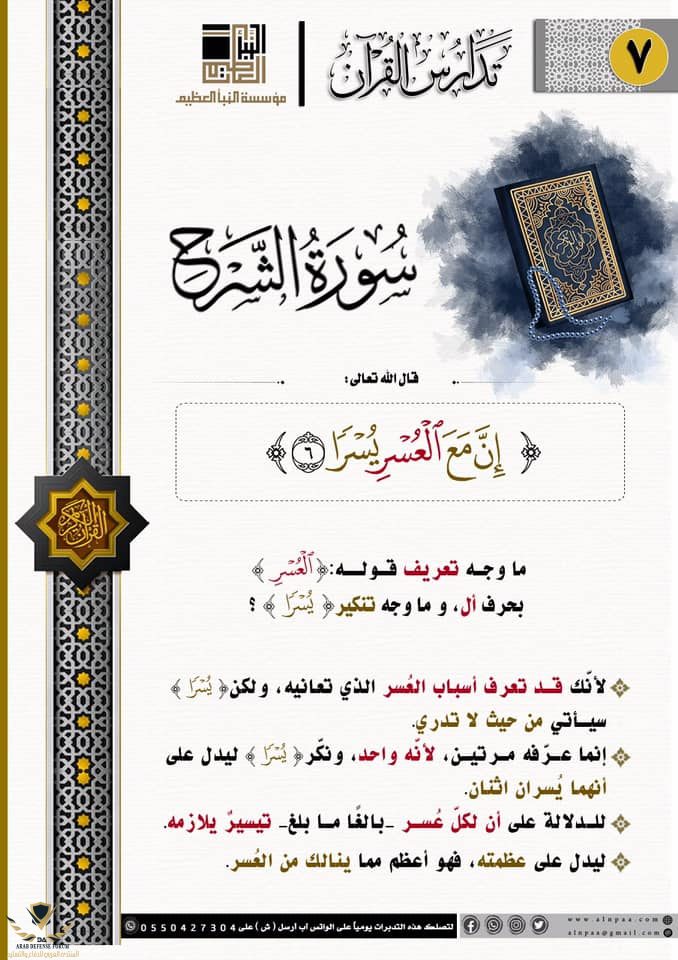 ٧
تَدَارُسُ القُرْآن
النبأ العظيم
مؤسسة النبأ العظيم
سُورَةُ الشَّرْحِ
قال الله تعالى:
﴿إِنَّ مَعَ ٱلْعُسْرِ يُسْرًا ٦﴾
القرآن الكريم
ما وجـه تعريف قـولـــه: ﴿ٱلْعُسْرِ﴾
بحرف أل، و ما وجه تنكير ﴿يُسْرًا﴾ ؟
لأنّك قــد تعرف أسباب العُسر الذي تعانيه، ولكن ﴿يُسْرًا﴾
سيـأتي من حيث لا تدري.
إنما عـرّفه مـرتيـن، لأنّه واحد، ونكّر ﴿يُسْرًا﴾ ليدل على
أنهما يُسران اثنان.
للـدلالة على أن لكلّ عُسـر _بالغًا مـا بلغ_ تيسيرٌ يلازمه.
ليدل على عظمته، فهو أعظم مما ينالك من العُسر.
لتصلك هذه التدبرات يومياً على الواتس اب أرسل ( ش ) على 0550427304
www.alnpaa.com
alnpaa@gmail.com
ARAB DEFENSE FORUM
المنتدى العربي للدفاع والتسليح